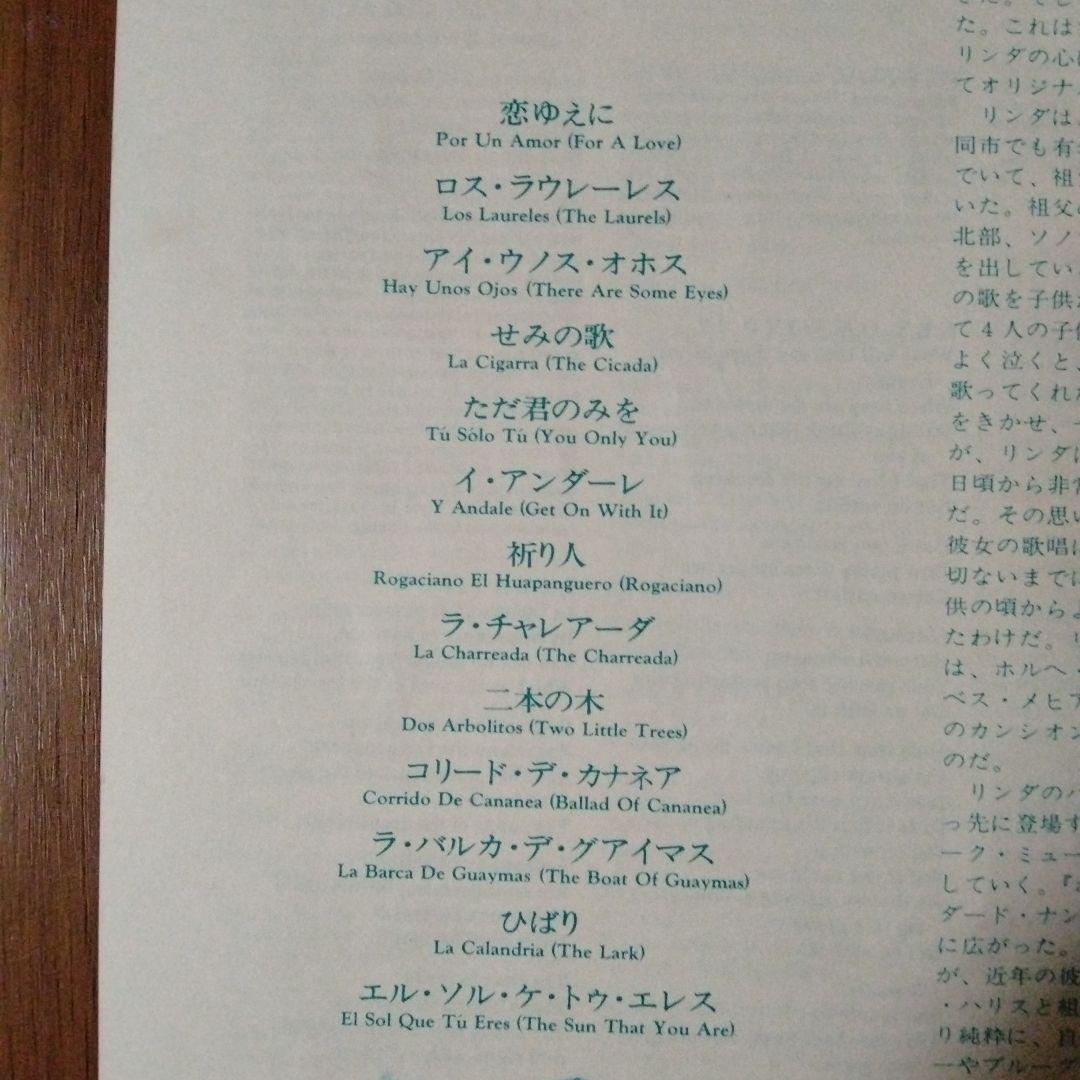 恋ゆえに
Por Un Amor (For A Love)
ロス・ラウレーレス
Los Laureles (The Laurels)
アイ・ウノス・オホス
Hay Unos Ojos (There Are Some Eyes)
せみの歌
La Cigarra (The Cicada)
ただ君のみを
Tú Sólo Tú (You Only You)
イ・アンダーレ
Y Andale (Get On With It)
祈り人
Rogaciano El Huapanguero (Rogaciano)
ラ・チャレアーダ
La Charreada (The Charreada)
二本の木
Dos Arbolitos (Two Little Trees)
コリード・デ・カナネア
Corrido De Cananea (Ballad Of Cananea)
ラ・バルカ・デ・グアイマス
La Barca De Guaymas (The Boat Of Guaymas)
ひばり
La Calandria (The Lark)
エル・ソル・ケ・トゥ・エレス
El Sol Que Tú Eres (The Sun That You Are)
た。これは
リンダの心
てオリジナ
リンダは、
同市でも有
でいて、祖
いた。祖父
北部、ソノ
を出してい
の歌を子供
て4人の子
よく泣くと、
歌ってくれ
をきかせ、
が、リンダ
日頃から非
だ。その思い
彼女の歌唱
切ないまでに
供の頃からよ
たわけだ。
は、ホルヘ・
ベス・メヒア
のカンシオン
のだ。
リンダのバ
っ先に登場す
ーク・ミュー
していく。『
ダード・ナン
に広がった。
が、近年の彼
・ハリスと組
り純粋に、
ーやブルーグ